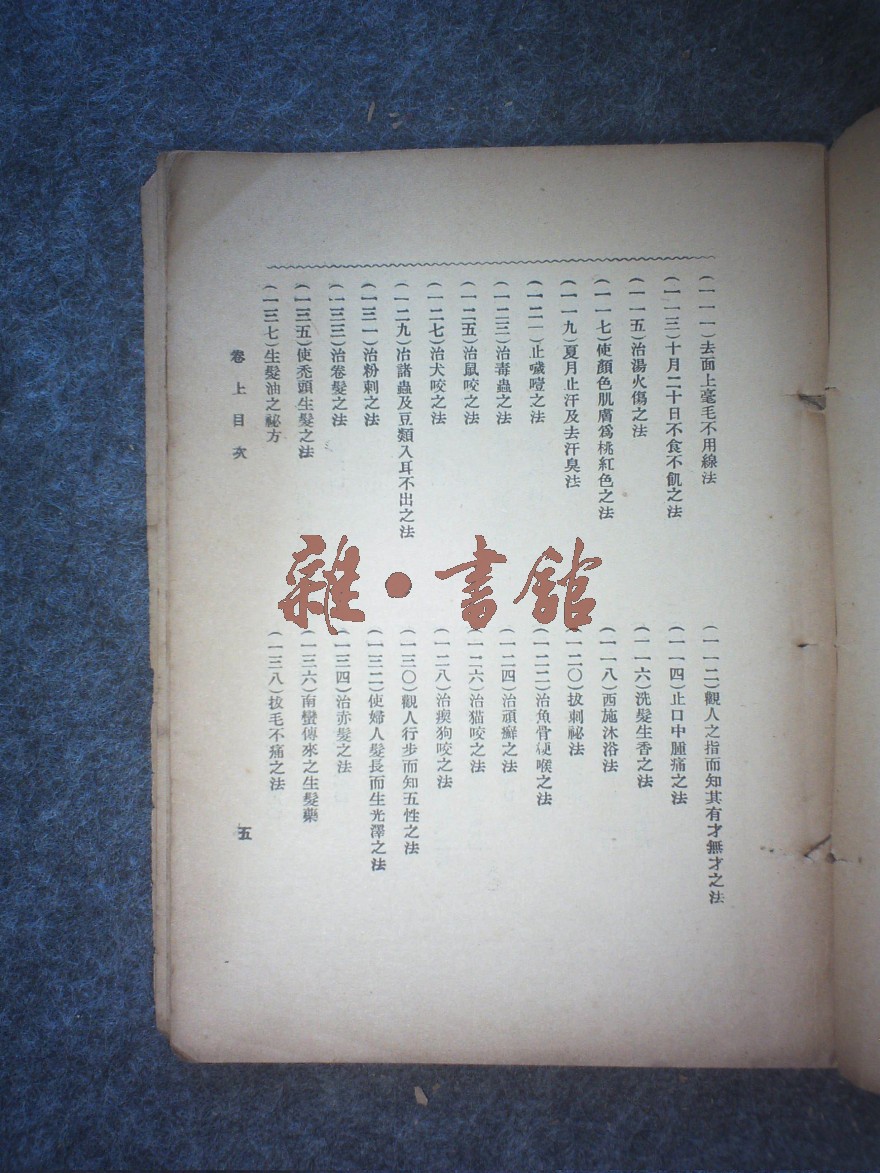 (一一一)去面上毫毛不用線法
(一一二)觀人之指而知其有才無才之法
(一一三)十月二十日不食不飢之法
(一一四)止口中腫痛之法
(一一五)治湯火傷之法
(一一六)洗髮生香之法
(一一七)使顏色肌膚爲桃紅色之法
(一一八)西施沐浴法
(一一九)夏月止汗及去汗臭法
(一二〇)拔刺祕法
(一二一)止噦噎之法
(一二二)治魚骨硬喉之法
(一二三)治毒蟲之法
(一二四)治頑癬之法
(一二五)治鼠咬之法
(一二六)治猫咬之法
(一二七)治犬咬之法
(一二八)治瘈狗咬之法
(一二九)治諸蟲及豆類入耳不出之法
(一三〇)觀人行步而知五性之法
(一三一)治粉刺之法
(一三二)使婦人髮長而生光澤之法
(一三三)治卷髮之法
(一三四)治赤髮之法
(一三五)使禿頭生髮之法
(一三六)南蠻傳來之生髮藥
(一三七)生髮油之祕方
(一三八)拔毛不痛之法
卷上目次
五
雜·書館